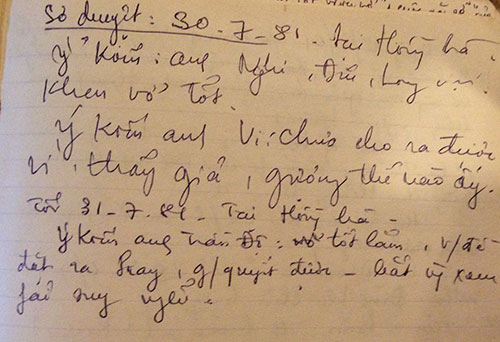 Sơ duyệt: 30-7-81 - tại Hồng hà.
Ý kiến: anh Nghi, Đỉu, Long vụ:
Khen vở tốt.
Ý kiến anh Vi: chưa cho ra được
vì, thấy giả, gượng thế nào ấy.
Tối 31-7-81 - Tại Hồng hà -
Ý kiến anh trần Độ: vở tốt lắm, v/đề
đặt ra hay, g/quyết được - bắt ng xem
fải suy nghĩ.